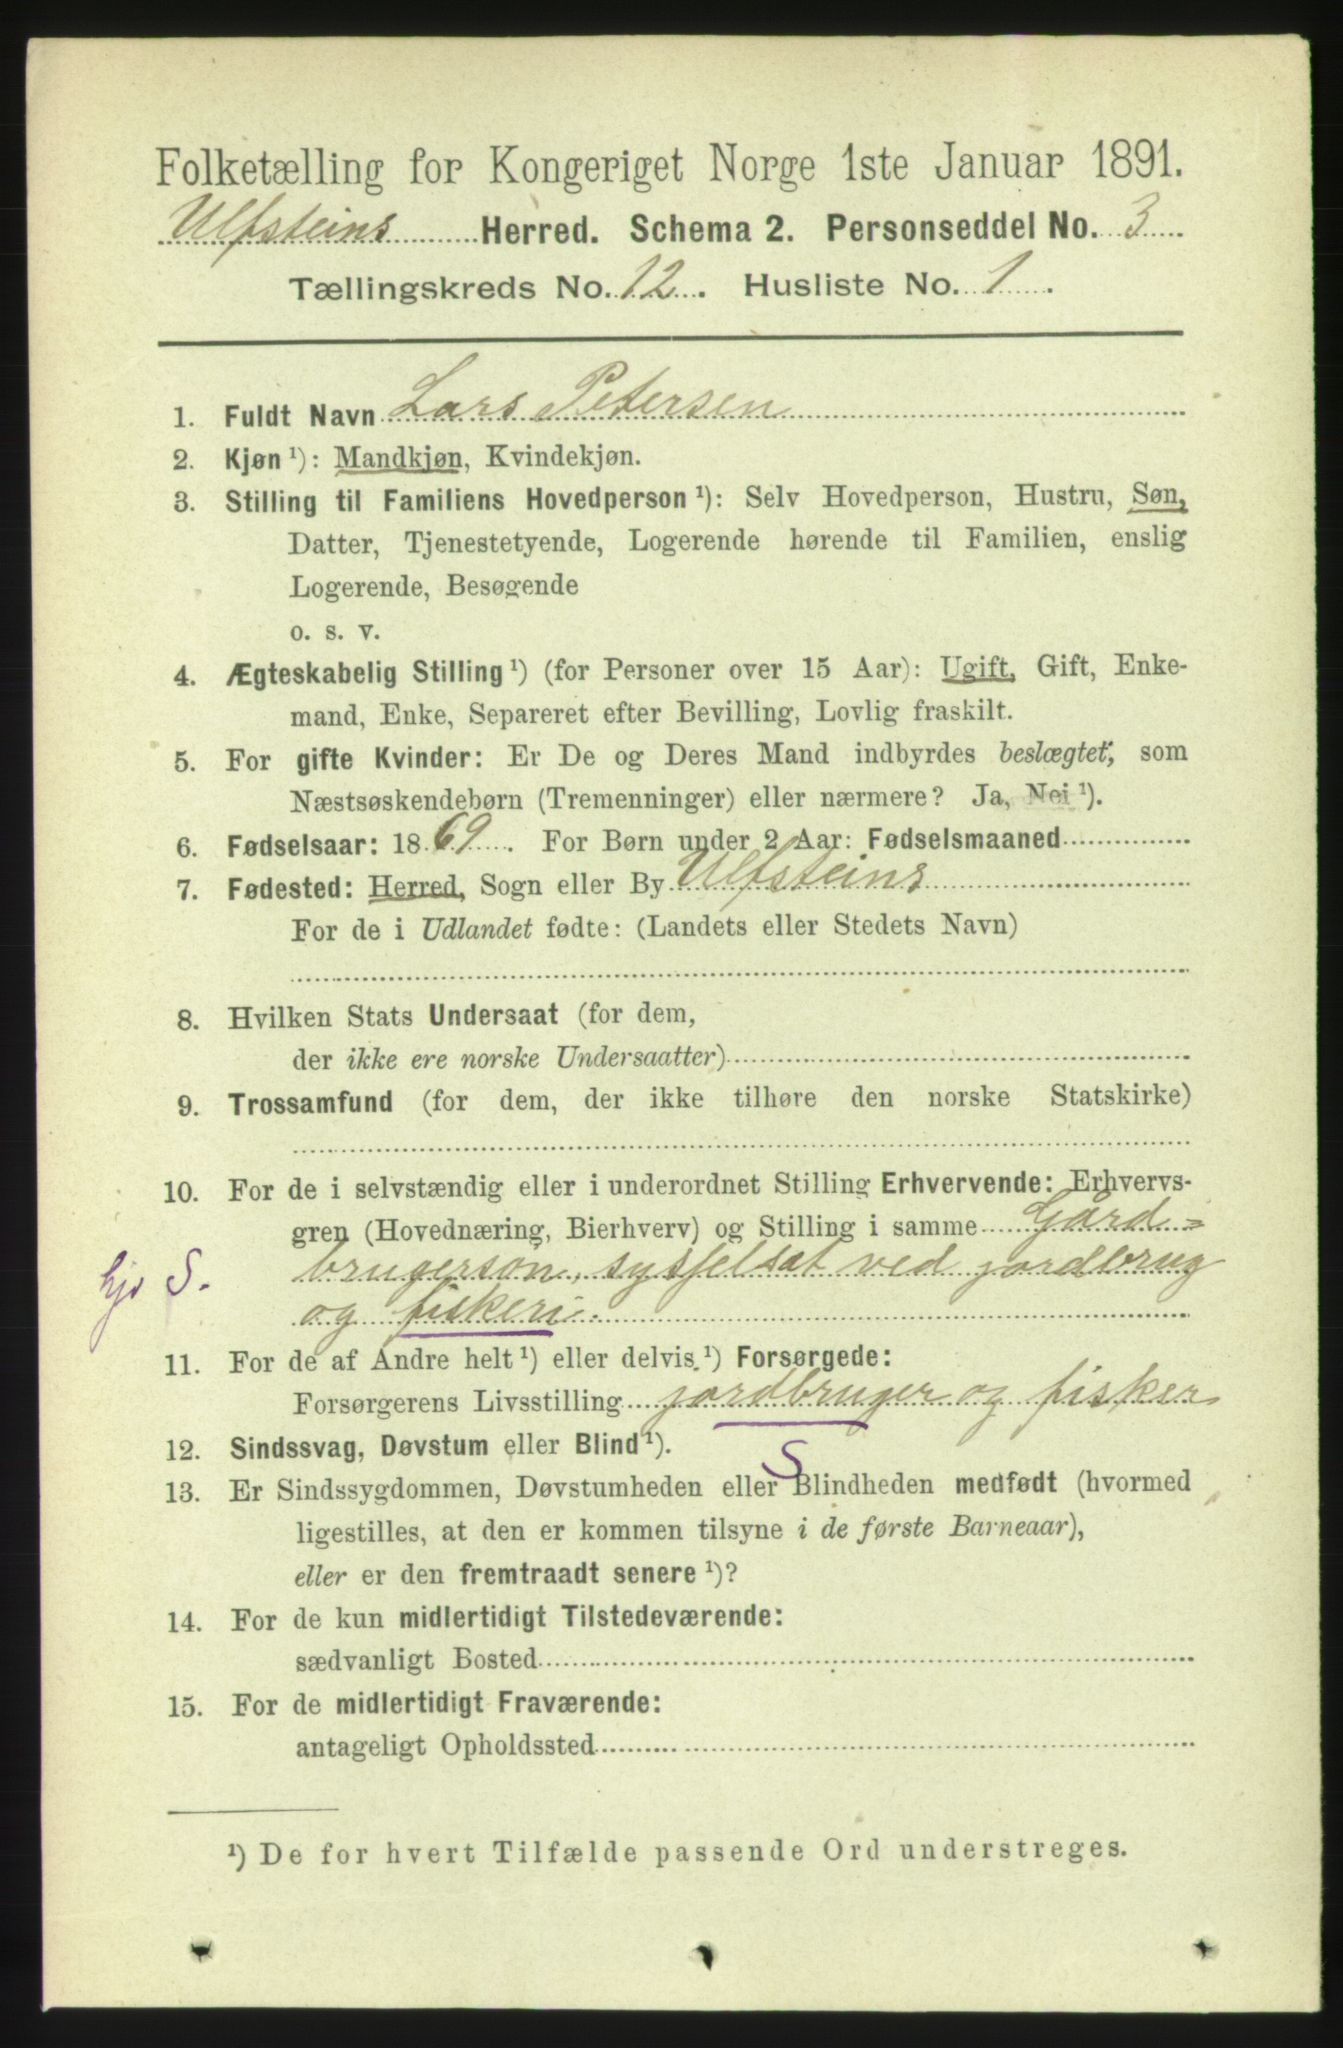 Folketælling for Kongeriget Norge 1ste Januar 1891.
Ulfsteins Herred. Schema 2. Personseddel No. 3
Tællingskreds No. 12. Husliste No. 1.
1. Fuldt Navn Lars Petersen
2. Kjøn ¹): Mandkjøn, Kvindekjøn.
3. Stilling til Familiens Hovedperson ¹): Selv Hovedperson, Hustru, Søn,
Datter, Tjenestetyende, Logerende hørende til Familien, enslig
Logerende, Besøgende
o. s. v.
4. Ægteskabelig Stilling ¹) (for Personer over 15 Aar): Ugift, Gift, Enke-
mand, Enke, Separeret efter Bevilling, Lovlig fraskilt.
5. For gifte Kvinder: Er De og Deres Mand indbyrdes beslægtet, som
Næstsøskendebørn (Tremenninger) eller nærmere? Ja, Nei ¹).
6. Fødselsaar: 1869. For Børn under 2 Aar: Fødselsmaaned
7. Fødested: Herred, Sogn eller By Ulfsteins
For de i Udlandet fødte: (Landets eller Stedets Navn)
8. Hvilken Stats Undersaat (for dem,
der ikke ere norske Undersaatter)
9. Trossamfund (for dem, der ikke tilhøre den norske Statskirke)
10. For de i selvstændig eller i underordnet Stilling Erhvervende: Erhvervs-
gren (Hovednæring, Bierhverv) og Stilling i samme Gård=
brugerson, sysselsat ved jordbrug
hjs S.
og fiskeri.
11. For de af Andre helt ¹) eller delvis ¹) Forsørgede:
Forsørgerens Livsstilling jordbruger og fisker
12. Sindssvag, Døvstum eller Blind ¹).
S
13. Er Sindssygdommen, Døvstumheden eller Blindheden medfødt (hvormed
ligestilles, at den er kommen tilsyne i de første Barneaar),
eller er den fremtraadt senere ¹)?
14. For de kun midlertidigt Tilstedeværende:
sædvanligt Bosted
15. For de midlertidigt Fraværende:
antageligt Opholdssted
¹) De for hvert Tilfælde passende Ord understreges.